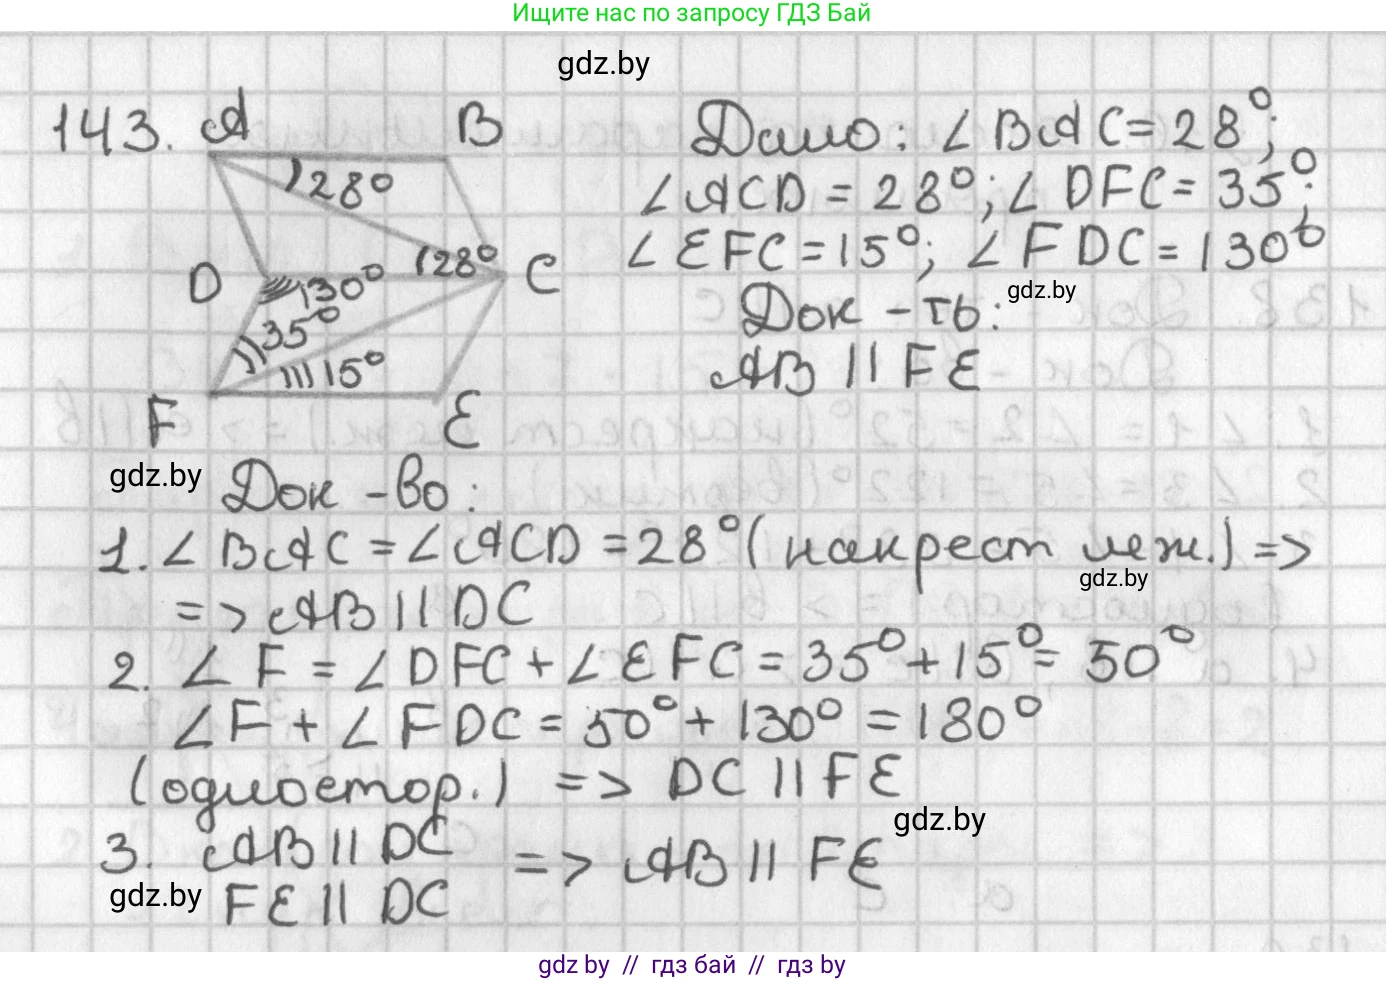 Ищите нас по запросу ГДЗ Бай
gdz.by
143. A B
28° 28° C
D 130°
35°
15°
F E
Дано: ∠BAC=28°;
∠ACD = 28°; ∠DFC = 35°;
∠EFC=15°; ∠FDC=130°
gdz.by
Док-ть:
AB || FE
gdz.by
Док-во:
1. ∠BAC = ∠ACD = 28° (накрест леж.) =>
gdz.by
=> AB || DC
2. ∠F = ∠DFC + ∠EFC = 35° + 15° = 50°
∠F + ∠FDC = 50° + 130° = 180°
(одностор.) => DC || FE
gdz.by
3. AB || DC => AB || FE
gdz.by
FE || DC
gdz by // гдз бай // гдз by